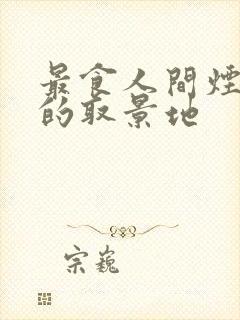 最食人間煙
的取景地
宗巍